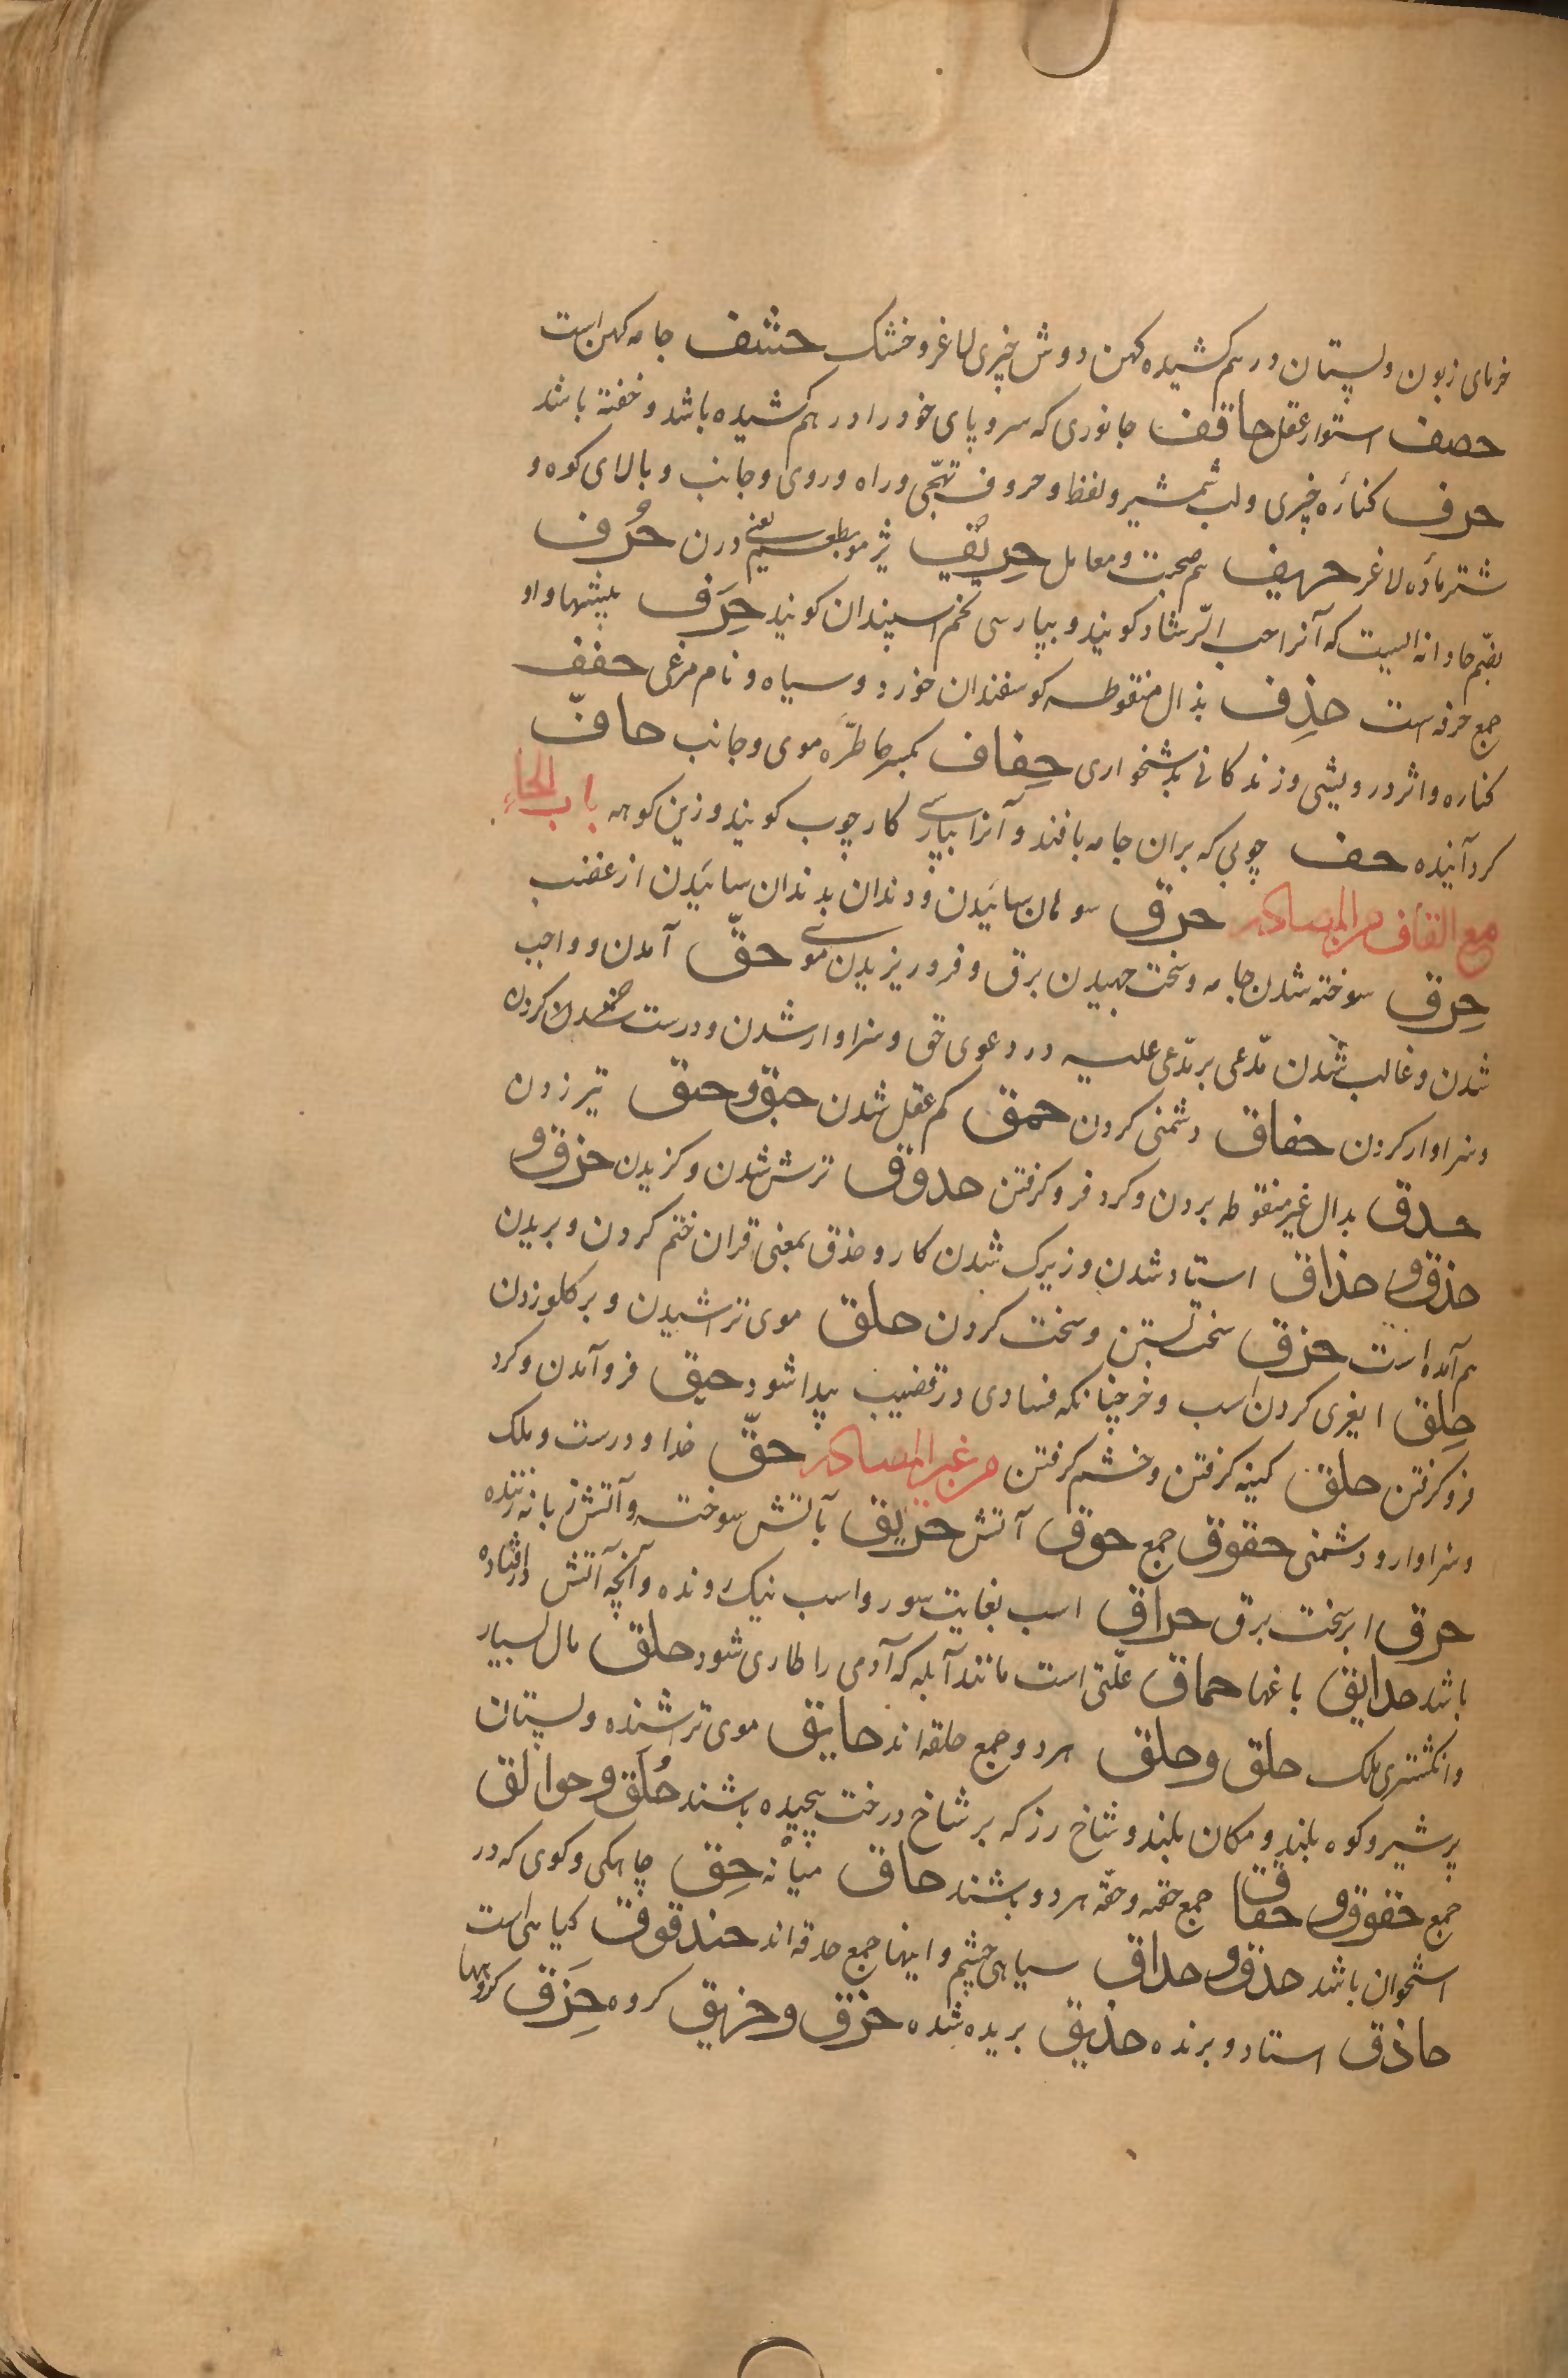 خرمای زبون و پستان درهم کشیده کهن و وش چیزی لاغر و خشک حشف جامه کهن است
حصف استوار عقل حاقف جانوری که سر و پای خود را درهم کشیده باشد و خفته باشد
حرف کنارَه چیزی و لب شمشیر و لفظ و حروف تهجّی و راه و روی و جانب و بالای کوه و
شتر مادَه لاغر حریف هم صحبت و معامل حِرِیّف یعنی درن حُرف
بضم حا دانه ایست که آنرا حب الرّشاد کویند و بپارسی تخم اسپندان کویند حِرَف پیشها و او
جمع حرفه است حذِف بذال منقوطه کوسفندان خورد و سیاه و نام مرغی حفف
کناره و اثر درویشی و زندکانی بدشخواری حِفاف بکسر حا طرّه موی و جانب حافّ
کرد آینده حف چوبی که بران جامه بافند و آنرا بپارسی کارچوب کویند و زین کوهه باب الحاء
مع القاف من المصادر حرق سوهان سائیدن و دندان بدندان سائیدن از غضب
حِرق سوخته شدن جامه و سخت جهیدن برق و فرو ریزیدن موی حقّ آمدن و واجب
شدن و غالب شدن مدّعی بر مدّعی علیه در دعوی حق و سزاوار شدن و درست شدن کردن
و سزاوار کردن حقاق دشمنی کردن حمق کم عقل شدن حبق و حبق تیز زدن
حدق بدال غیر منقوطه بردن و کرد فرو کرفتن حذوق ترش شدن و کزیدن حذق و
حذق و حذاق استاد شدن و زیرک شدن کار و حذق بمعنی قران ختم کردن و بریدن
هم آمده است حزق سخت بستن و سخت کردن حلق موی تراشیدن و بر کلو زدن
حلِق ایغری کردن اسب و خر چنانکه فسادی در قضیب پیدا شود حیق فرو آمدن و کرد
فرو کرفتن حلق کینه کرفتن و خشم کرفتن من غیر المصادر حقّ خدا و درست و ملک
و سزاوار و دشمنی حقوق جمع حوق آتش حریق بآتش سوخته و آتش زبانه زننده
حرق ابر سخت برق حراق اسب بغایت سور و اسب نیک رونده و آنچه آتش درافتاده
باشد حدایق باغها حماق علّتی است مانند آبله که آدمی را طاری شود حلق مال بسیار
و انکشتری ملک حلق و حلق هردو جمع حلقه اند حایق موی تراشنده و پستان
پر شیر و کوه بلند و مکان بلند و شاخ رز که بر شاخ درخت پیچیده باشند حُلّق و حوالق
جمع حقوق و حقاق جمع حقه و حقّه هردو باشند حاق میانه حِق چاهکی و کوی که در
استخوان باشد حدق و حداق سیاهی چشم و اینها جمع حدقه اند حندقوق کیاهی است
حاذق استاد و برنده حذیق بریده شده حزق و حزیق کروه حِزَق کروهها